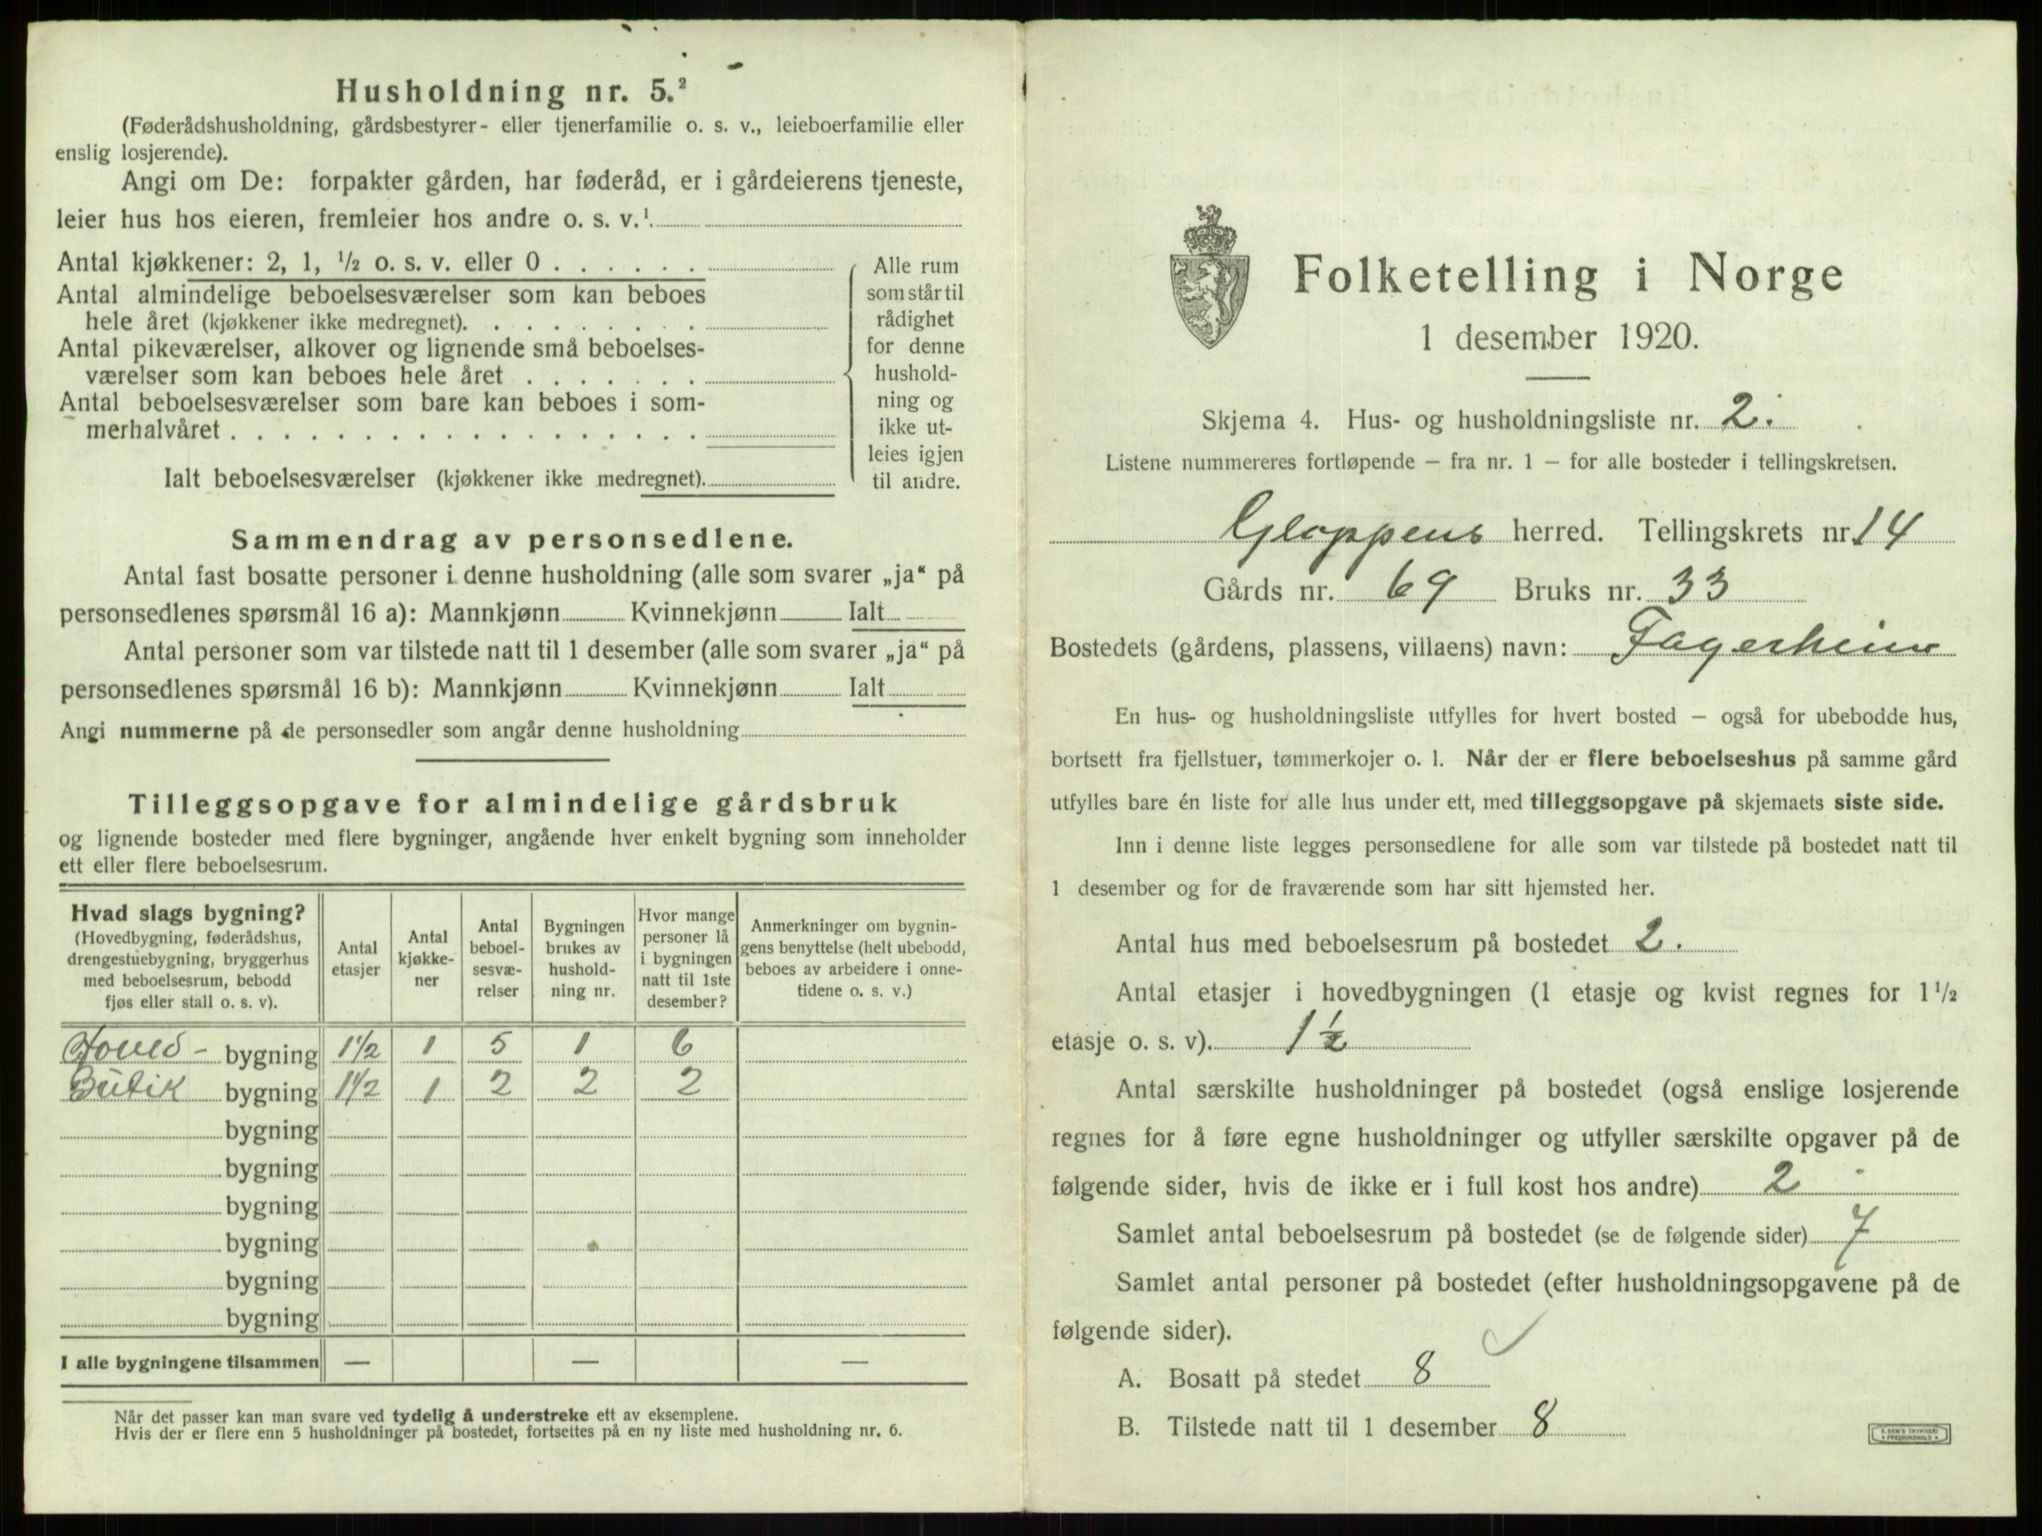 Husholdning nr. 5.²
(Føderådshusholdning, gårdsbestyrer- eller tjenerfamilie o. s. v., leieboerfamilie eller
enslig losjerende).
Angi om De: forpakter gården, har føderåd, er i gårdeierens tjeneste,
leier hus hos eieren, fremleier hos andre o. s. v.¹
Antal kjøkkener: 2, 1, ½ o. s. v. eller 0 . . . . . .
Antal almindelige beboelsesværelser som kan beboes
hele året (kjøkkener ikke medregnet). . . . . . . . .
Antal pikeværelser, alkover og lignende små beboelses-
værelser som kan beboes hele året . . . . . . .
Antal beboelsesværelser som bare kan beboes i som-
merhalvåret . . . . . . . . . . . . . . . . . .
Ialt beboelsesværelser (kjøkkener ikke medregnet).
Alle rum
som står til
rådighet
for denne
hushold-
ning og
ikke ut-
leies igjen
til andre.
Sammendrag av personsedlene.
Antal fast bosatte personer i denne husholdning (alle som svarer „ja“ på
personsedlenes spørsmål 16 a): Mannkjønn Kvinnekjønn Ialt
Antal personer som var tilstede natt til 1 desember (alle som svarer „ja“ på
personsedlenes spørsmål 16 b): Mannkjønn Kvinnekjønn Ialt
Angi nummerne på de personsedler som angår denne husholdning
Tilleggsopgave for almindelige gårdsbruk
og lignende bosteder med flere bygninger, angående hver enkelt bygning som inneholder
ett eller flere beboelsesrum.
Hvad slags bygning?
(Hovedbygning, føderådshus,
drengestuebygning, bryggerhus
med beboelsesrum, bebodd
fjøs eller stall o. s. v).
Antal
etasjer
Antal
kjøkke-
ner
Antal
beboel-
sesvæ-
relser
Bygningen
brukes av
hushold-
ning nr.
Hvor mange
personer lå
i bygningen
natt til 1ste
desember?
Anmerkninger om bygnin-
gens benyttelse (helt ubebodd,
beboes av arbeidere i onne-
tidene o. s. v.)
Hoved- bygning 1½ 1 5 1 6
Butik bygning 1½ 1 2 2 2
bygning
bygning
bygning
bygning
bygning
bygning
I alle bygningene tilsammen — — —
Når det passer kan man svare ved tydelig å understreke ett av eksemplene.
Hvis der er flere enn 5 husholdninger på bostedet, fortsettes på en ny liste med husholdning nr. 6.
Folketelling i Norge
1 desember 1920.
Skjema 4. Hus- og husholdningsliste nr. 2.
Listene nummereres fortløpende – fra nr. 1 – for alle bosteder i tellingskretsen.
Gloppens herred. Tellingskrets nr. 14
Gårds nr. 69 Bruks nr. 33
Bostedets (gårdens, plassens, villaens) navn: Fagerheim
En hus- og husholdningsliste utfylles for hvert bosted – også for ubebodde hus,
bortsett fra fjellstuer, tømmerkojer o. l. Når der er flere beboelseshus på samme gård
utfylles bare én liste for alle hus under ett, med tilleggsopgave på skjemaets siste side.
Inn i denne liste legges personsedlene for alle som var tilstede på bostedet natt til
1 desember og for de fraværende som har sitt hjemsted her.
Antal hus med beboelsesrum på bostedet 2.
Antal etasjer i hovedbygningen (1 etasje og kvist regnes for 1½
etasje o. s. v). 1½
Antal særskilte husholdninger på bostedet (også enslige losjerende
regnes for å føre egne husholdninger og utfyller særskilte opgaver på de
følgende sider, hvis de ikke er i full kost hos andre) 2
Samlet antal beboelsesrum på bostedet (se de følgende sider) 7
Samlet antal personer på bostedet (efter husholdningsopgavene på de
følgende sider).
A. Bosatt på stedet 8
B. Tilstede natt til 1 desember 8